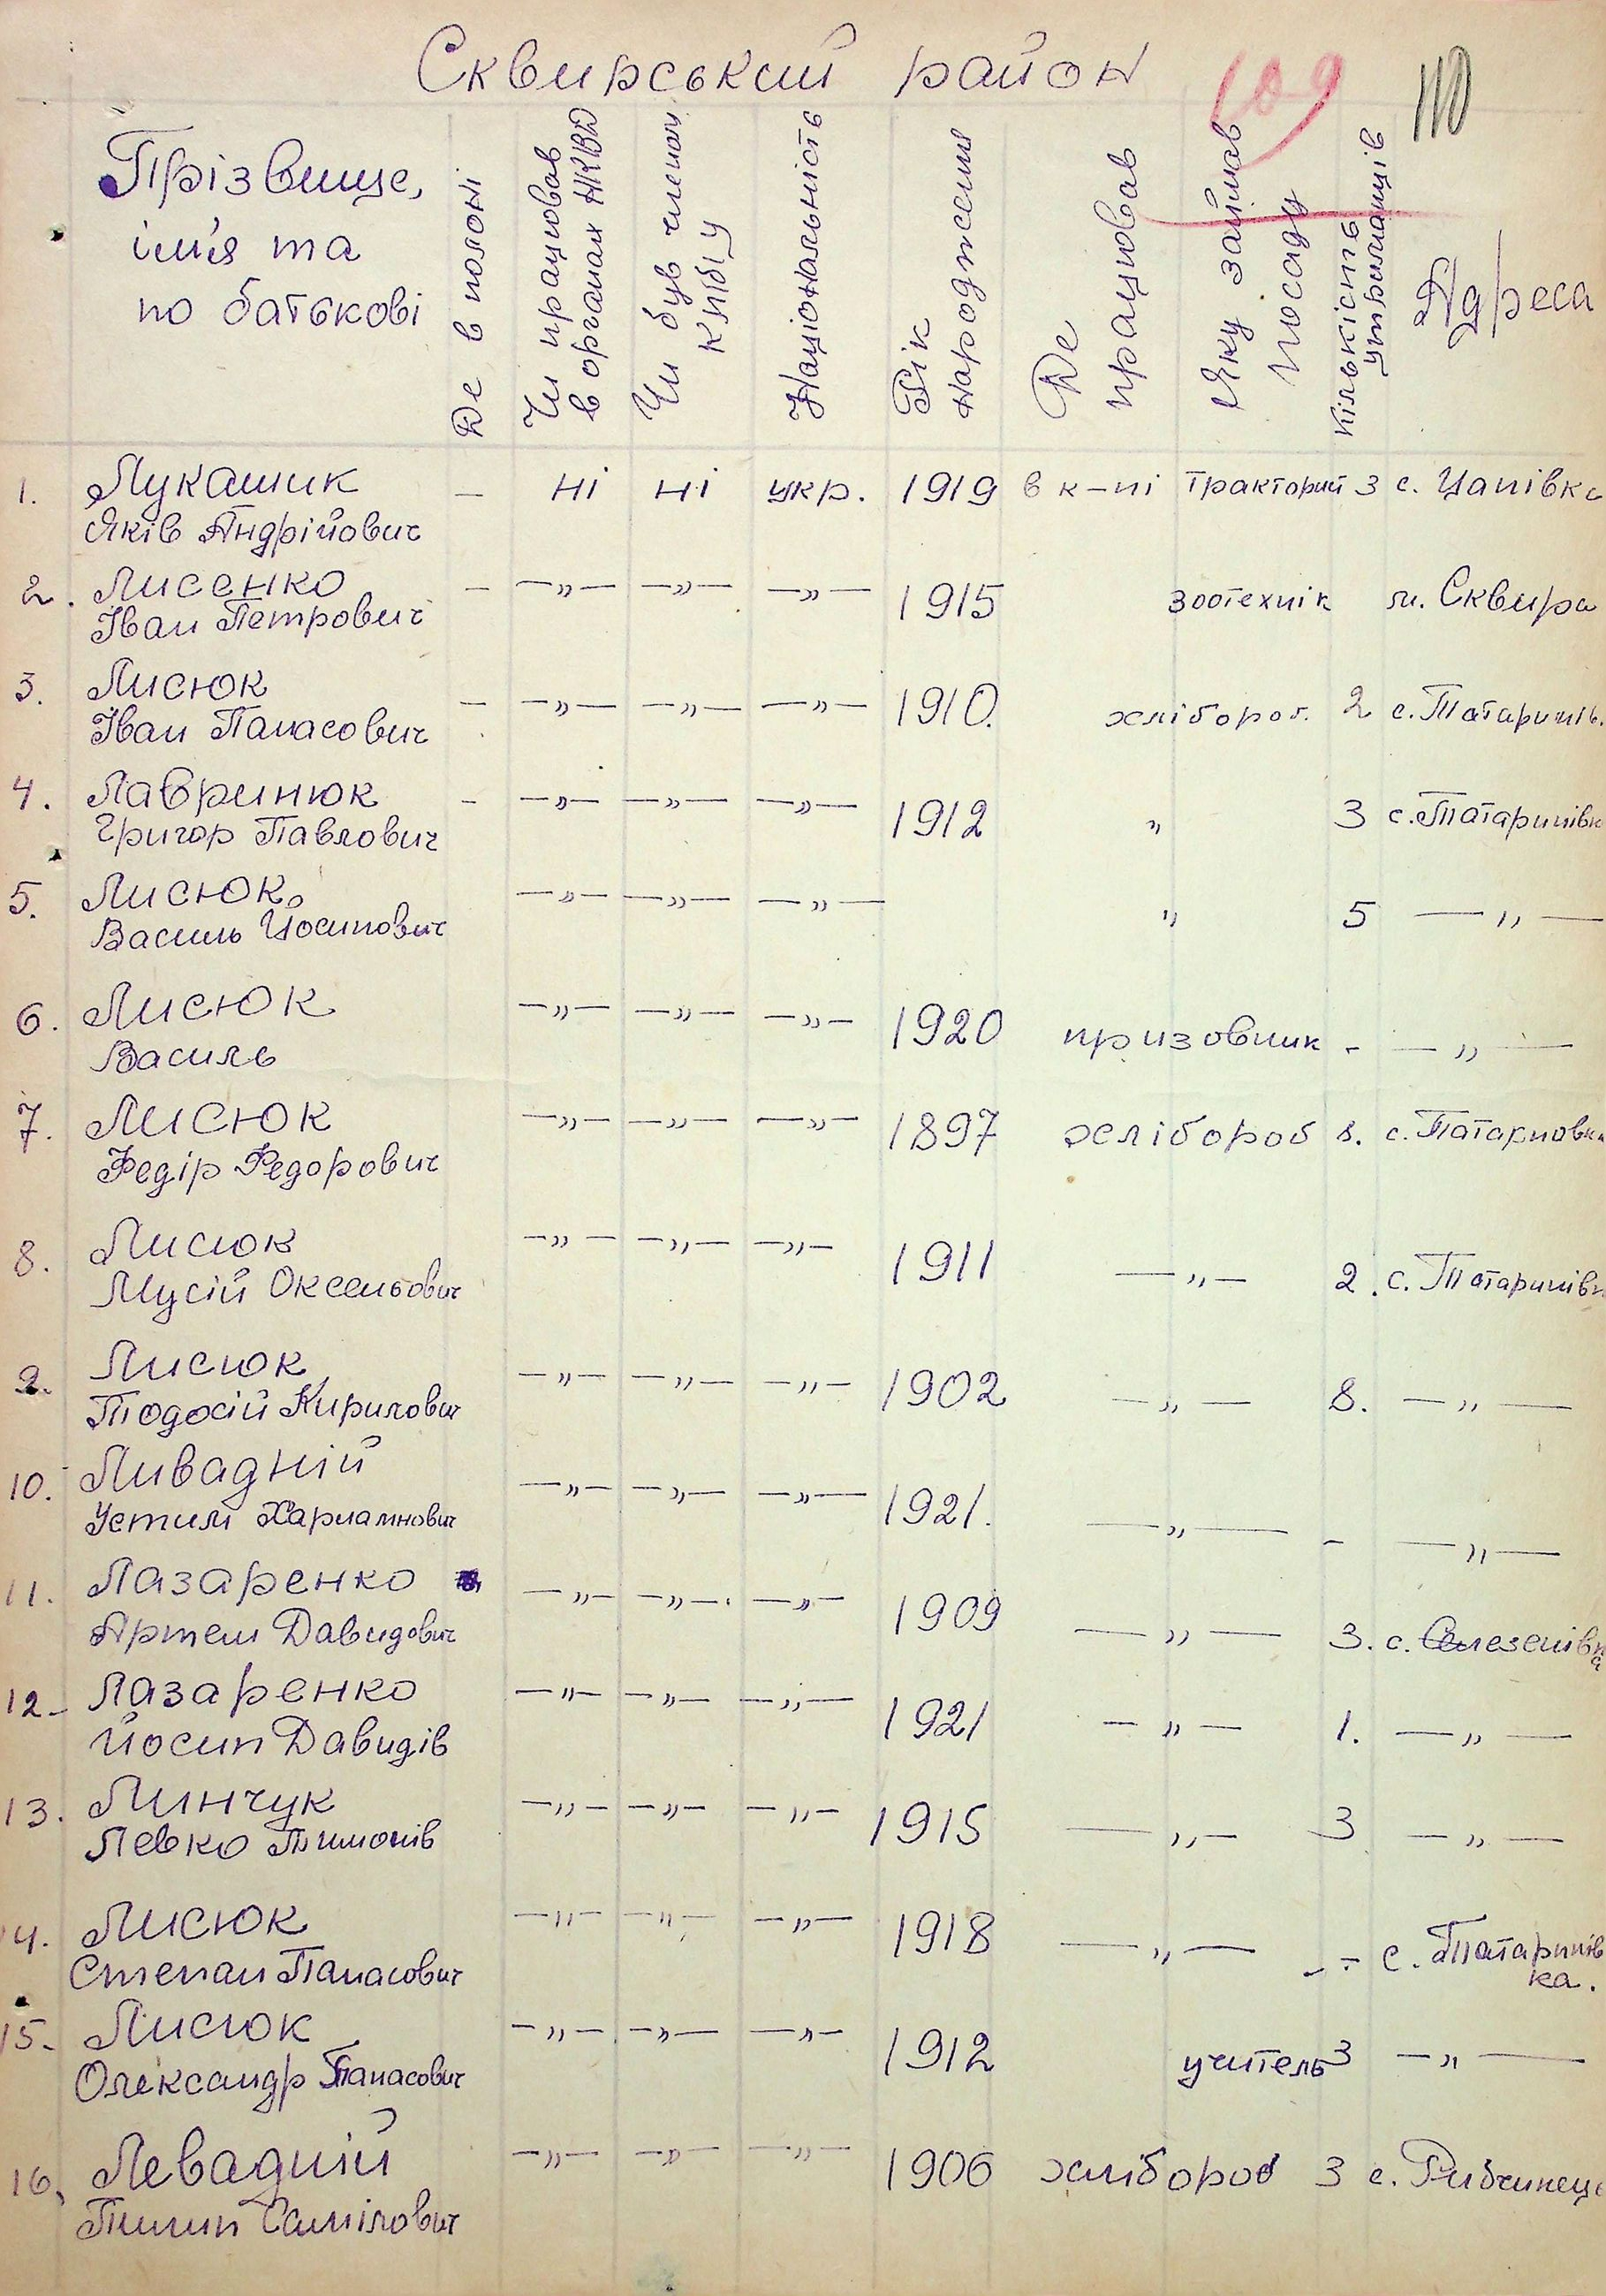 Сквирський район 109 110
Прізвище,
ім'я та
по батькові
Де в полоні
Чи працював
в органах НКВД
Чи був членом
КП(б)У
Національність
Рік
народження
Де
працював
Яку займав
посаду
Кількість
утриманців
Адреса
1. Лукашик — ні ні укр. 1919 в к-пі Тракторист 3 с. Цапівка
Яків Андрійович
2. Лисенко — —„— —„— —„— 1915 зоотехнік м. Сквира
Іван Петрович
3. Лисюк — —„— —„— —„— 1910. хлібороб. 2 с. Татаринів.
Іван Панасович
4. Лавринюк - —„— —„— —„— 1912 „ 3 с. Татаринівк
Григор Павлович
5. Лисюк —„— —„— —„— „ 5 —„—
Василь Йосипович
6. Лисюк —„— —„— —„— 1920 призовник - —„—
Василь
7. Лисюк —„— —„— —„— 1897 хлібороб 8. с. Татариовка
Федір Федорович
8. Лисюк —„— —„— —„— 1911 —„— 2. с. Татаринівк
Мусій Оксентович
9. Лисюк —„— —„— —„— 1902 —„— 8. —„—
Тодосій Кирилович
10. Ливадній —„— —„— —„— 1921. —„— - —„—
Устим Харламнович
11. Лазаренко —„— —„— —„— 1909 —„— 3. с. Селезенівка
Артем Давидович
12. Лазаренко —„— —„— —„— 1921 —„— 1. —„—
Йосип Давидів
13. Линчук —„— —„— —„— 1915 —„— 3 —„—
Левко Тимонів
14. Лисюк —„— —„— —„— 1918 —„— - с. Татаринів
ка.
Степан Панасович
15. Лисюк —„— —„— —„— 1912 учитель 3 —„—
Олександр Панасович
16. Левадній —„— —„— —„— 1906 хлібороб 3 с. Рибчинець
Пилип Самілович